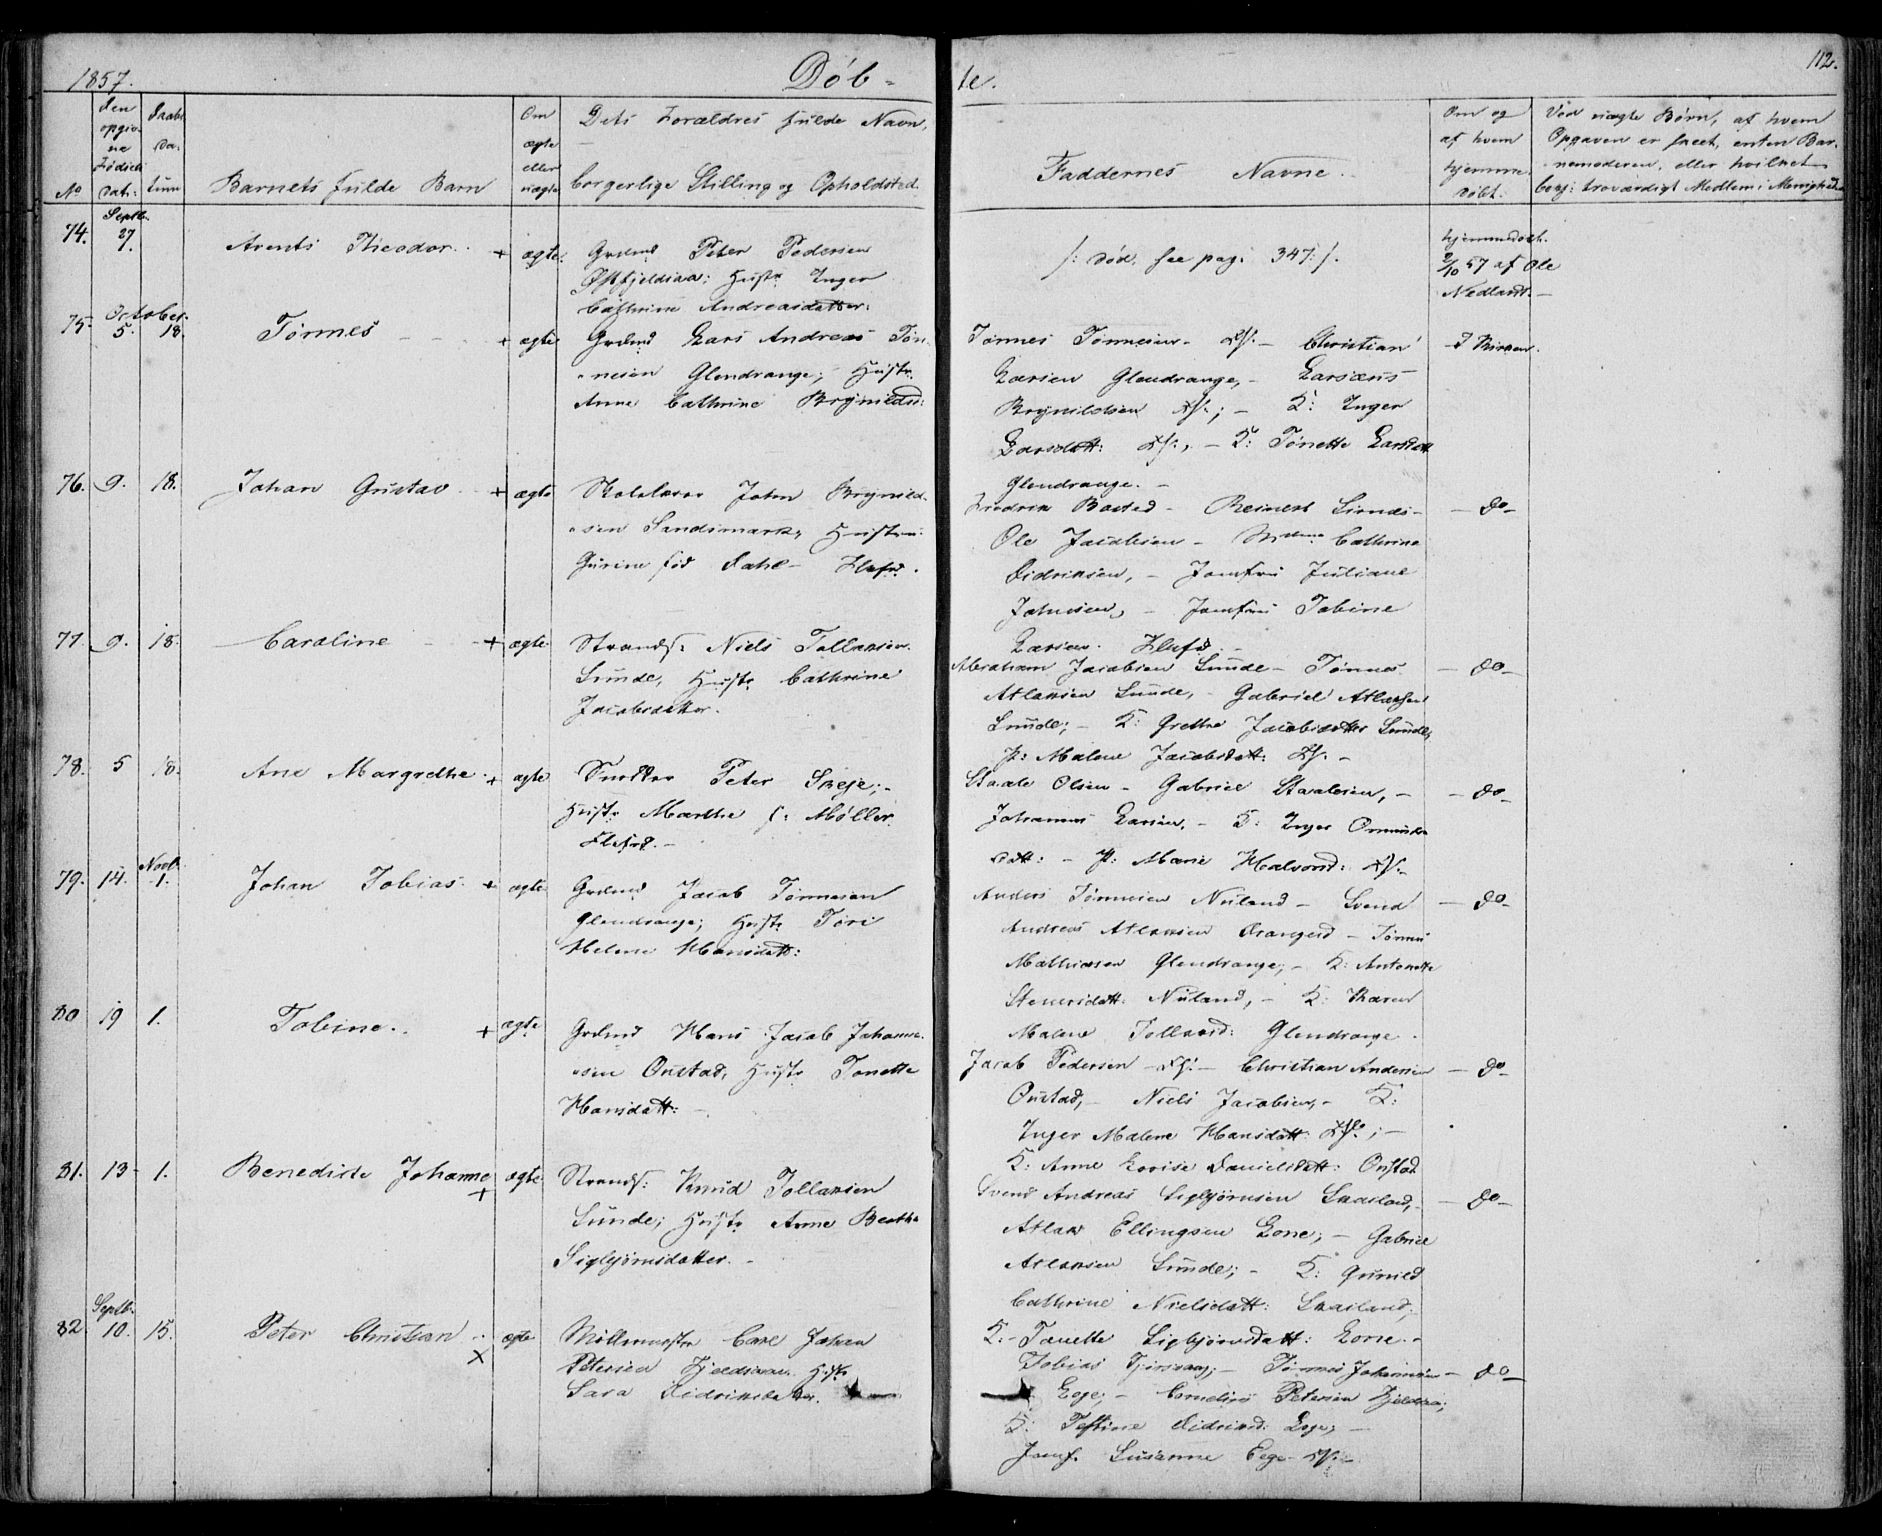 1857.
Døb-
te.
112.
No
Den opgivne Fødsels Dat:
Daabs Datum
Barnets fulde Navn
Om ægte eller uægte
Dets Forældres fulde Navn,
borgerlige Stilling og Opholdsted.
Faddernes Navne.
Om og af hvem hjemmedøbt.
Ved uægte Børn, af hvem
Opgaven er skeet, enten Bar-
nemoderen, eller hvilket
troværdigt Medlem i Menigheden
74.
Septb. 27.
Arents Theodor.
+ ægte.
Grdmd Peter Pedersen
Østfjeldsaa; Hustr Inger
Cathrine Andreasdatter.
/: død, see pag: 347 :/.
hjemmedøbt.
2/10 57 af Ole
Nedland.
75.
October 5.
18.
Tønnes
+ ægte
Grdmd Lars Andreas Tøn-
nesen Glendrange; Hustr.
Anne Cathrine Brynildsd:
Tønnes Tønnesen - Ds. - Christian
Larsen Glendrange, - Larsæus
Brynildsen Ds.; - K: Inger
Larsdatt: Ds., - K: Tønette Larsdatt
Glendrange. -
I Kirken.
76.
9.
18.
Johan Gustav
+ ægte
Skolelærer John Brynild-
sen Sandsmark, Hustru
Gurine fød Dahl - Flefd.
Fredrik Bosted - Reinert Sunde -
Ole Jacobsen - Mdme Cathrine
Didriksen, - Jomfru Juliane
Johnsen, - Jomfru Tobine
Larsen. Flefd.
- Do -
77.
9.
18.
Caroline
+ ægte
Strands: Niels Tollaksen
Sunde, Hustr Cathrine
Jacobsdatter.
Abraham Jacobsen Sunde - Tønnes
Atlaksen Sunde, - Gabriel Atlaksen
Sunde; - K: Grethe Jacobsdatter Sunde,
P: Malene Jacobsdatt: Ds. -
- Do -
78.
5
18.
Ane Margrethe
+ ægte
Snedker Peter Skeje; -
Hustr Marthe f: Møller
Flefd. -
Staale Olsen - Gabriel Staalesen, -
Johannes Larsen, - K: Inger Omunds
datt: - P: Marie Halvorsd: Ds. -
- Do -
79.
14.
Novb. 1.
Johan Tobias.
+ ægte
Grdmd Jacob Tønnesen
Glendrange; Hustr Tori
Helene Hansdatt:
Anders Tønnesen Nuland - Svend
Andreas Atlaksen Drangeid - Tønnes
Mathiasen Glendrange; - K: Antonette
Steensdatt: Nuland, - K: Karen
Malene Tollaksd: Glendrange.
- Do -
80
19
1.
Tobine.
+ ægte
Grdmd Hans Jacob Johanne-
sen Onstad, Hustr Tonette
Hansdatt: -
Jacob Pedersen - Ds. - Christian Andersen
Onstad, - Niels Jacobsen, - K:
Inger Malene Hansdatt: Ds.; -
K: Anne Lovise Danielsdatt: Onstad
- Do -
81.
13
1.
Benedicte Johanne
+ ægte
Strands: Knud Tollaksen
Sunde; Hustr Anne Berthe
Sigbjørnsdatter. -
Svend Andreas Sigbjørnsen Skailand, -
Atlak Ellingsen Lone; - Gabriel
Atlaksen Sunde; - K: Gunild
Cathrine Nielsdatt: Skailand;
K: Tønette Sigbjørnsdatt: Lone. -
- Do -
82
Septb. 10.
15.
Peter Christian
x ægte
Møllemester Carl Johan
Petersen Fjeldsaa. Hustr
Sara Didriksdatter.
Tobias - Tønnes Johannesen
Ege; - Cornelius Petersen Fjeldsaa;
K: Didriksd: Ege; -
Jomf. Susanne Ege Ds. -
- Do -